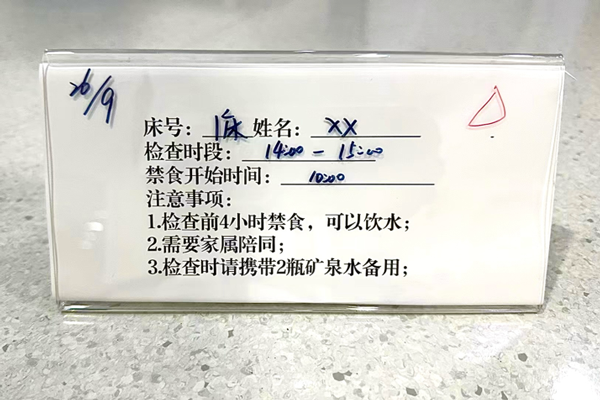 26/9
床号：1床 姓名：XX
检查时段：14:00 - 15:00
禁食开始时间：10:00
注意事项：
1.检查前4小时禁食，可以饮水；
2.需要家属陪同；
3.检查时请携带2瓶矿泉水备用；